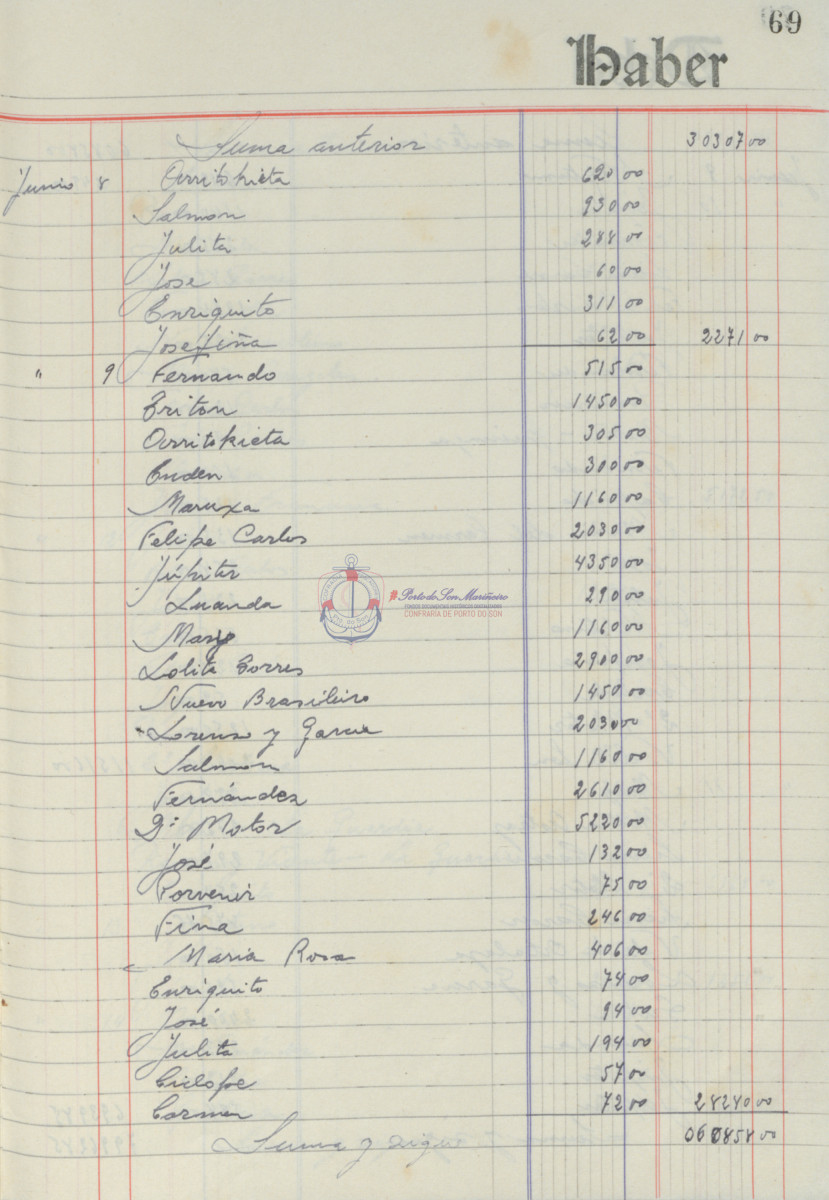 69
Haber
Suma anterior 30307 00
Junio 8 Arritokieta 620 00
Salmon 930 00
Julita 288 00
Jose 60 00
Enriquito 311 00
Josefiña 62 00 2271 00
" 9 Fernando 515 00
Triton 1450 00
Arritokieta 305 00
Enden 300 00
Maruxa 1160 00
Felipe Carlos 2030 00
Júpiter 4350 00
Luanda 290 00
Mary 1160 00
Lolita Torres 2900 00
Nuevo Brasileiro 1450 00
Lorenzo y Garcia 2030 00
Salmon 1160 00
Fernández 2610 00
Dº Motor 5220 00
José 132 00
Porvenir 75 00
Fina 246 00
Maria Rosa 406 00
Enriquito 74 00
José 94 00
Julita 194 00
Ciclope 57 00
Carmen 72 00 28240 00
Suma y sigue 060858 00
Porto do Son Mariñeiro
CONFRARIA DE PORTO DO SON